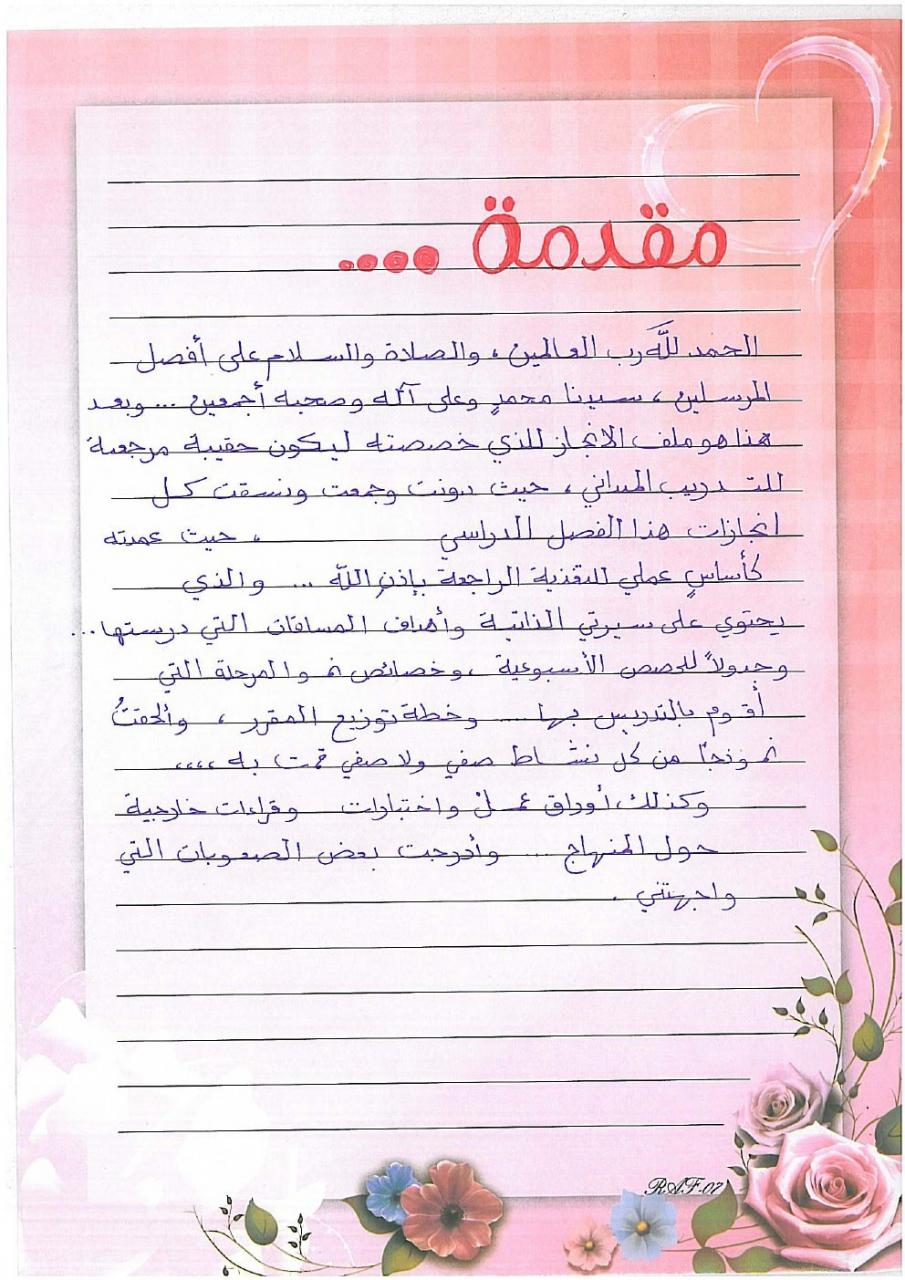 مقدمة ....
الحمد للَّه رب العالمين ، والصلاة والسلام على أفضل
المرسلين ، سيدنا محمدٍ وعلى آله وصحبه أجمعين ... وبعد
هذا هو ملف الانجاز للذي خصصته ليكون حقيبة مرجعية
للتدريب الميداني ، حيث دونت وجمعت ونسقت كل
انجازات هذا الفصل الدراسي ، حيث عمدته
كأساسٍ عملي للتغذية الراجعة بإذنِ اللَّه ... والذي
يحتوي على سيرتي الذاتية وأهداف المساقات التي درستها...
وجدولاً للحصص الأسبوعية ، وخصائص نمو المرحلة التي
أقوم بالتدريس بها .... وخطة توزيع المقرر ، وألحقتُ
نموذجًا من كل نشاط صفي ولا صفي قمت به ،،،،
وكذلك أوراق عمل واختبارات وقراءات خارجية
حول المنهاج .... وأدرجت بعض الصعوبات التي
واجهتني .
RAF-07